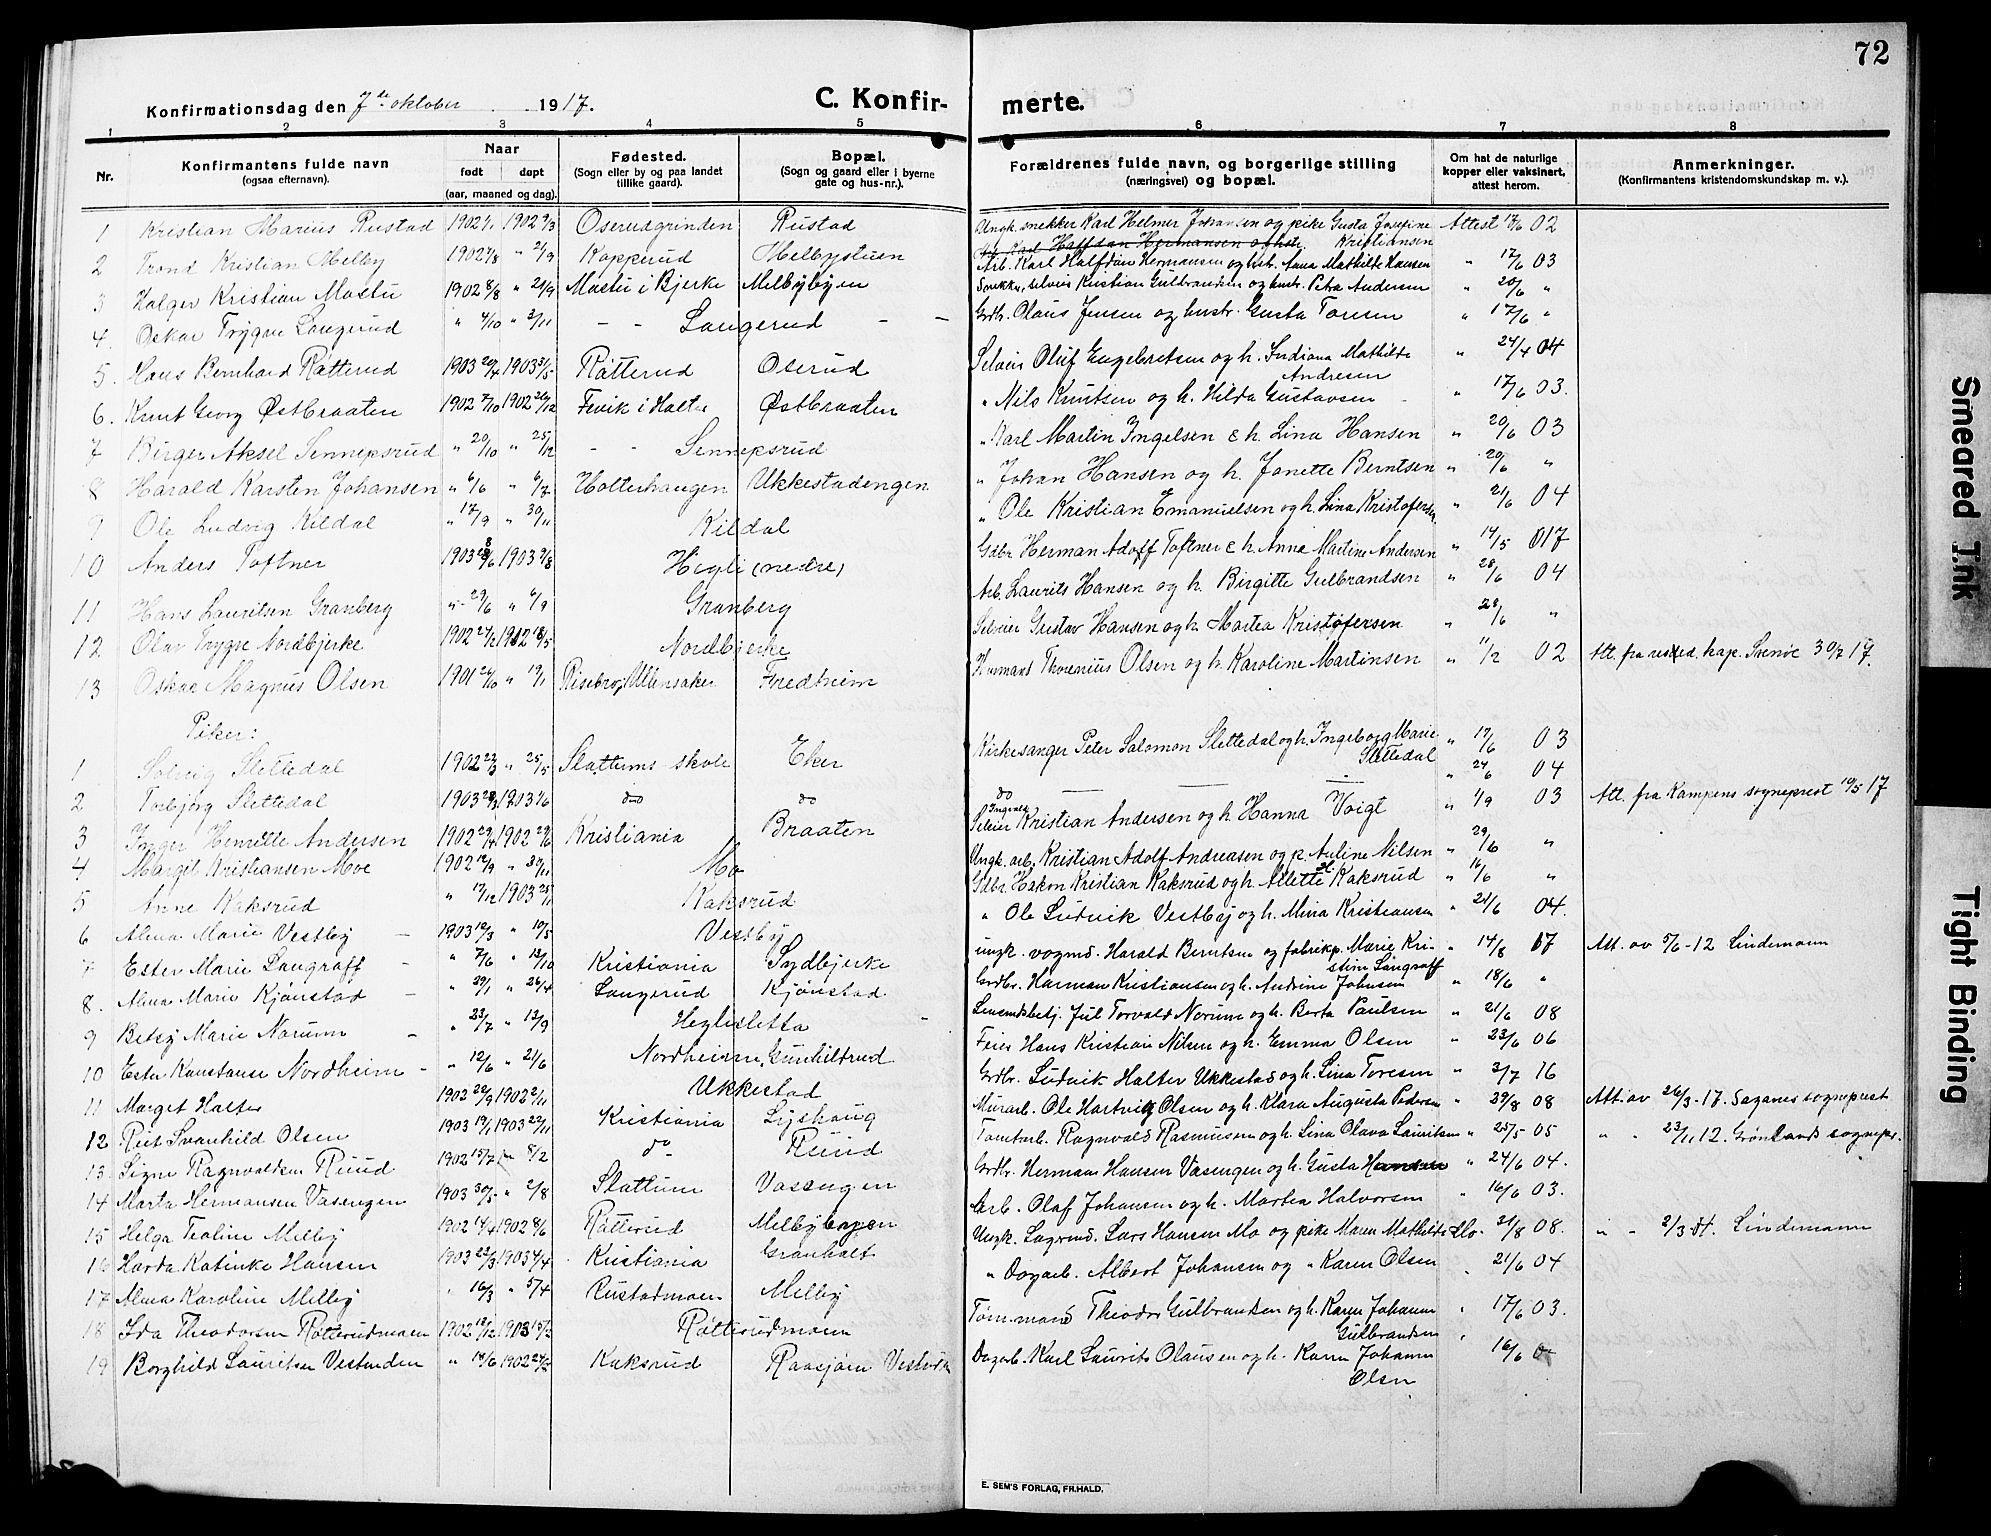 72
Konfirmationsdag den 7de oktober 1917.
C. Konfir-
merte.
1 2 3 4 5 6 7 8
Nr.
Konfirmantens fulde navn
(ogsaa efternavn).
Naar
født døpt
(aar, maaned og dag).
Fødested.
(Sogn eller by og paa landet
tillike gaard).
Bopæl.
(Sogn og gaard eller i byerne
gate og hus-nr.).
Forældrenes fulde navn, og borgerlige stilling
(næringsvei) og bopæl.
Om hat de naturlige
kopper eller vaksinert,
attest herom.
Anmerkninger.
(Konfirmantens kristendomskundskap m. v.).
1 Kristian Marius Rustad 1902 1902 9/3 Oserudgrinden Rustad Ungk. snekker Karl Helmer Johansen og pike Gusta Josefine Kristiansen Attest 02
2 Trond Kristian Melby 1902 " 2/9 Kopperud Melbystuen Arb. Karl Halfdan Hermansen og hstr. Anna Mathilde Hansen " 17/6 03
3 Holger Kristian Mostu 1902 8/8 " 21/9 Mostu i Bjerke Melbybyen Snekker, selveier Kristian Gulbrandsen og hustr. Petra Andersen " 20/6 "
4. Oskar Trygve Langerud " 4/10 " 2/11 - - Langerud - - Grdbr. Olaus Jensen og hustr. Gusta Toresen " 17/6 "
5. Hans Bernhard Råtterud 1903 1903 31/5 Råtterud Oserud Selveier Oluf Engebretsen og h. Indiana Mathilde Andresen " 24/4 04
6. Knut Georg Østbraaten 1902 7/10 1902 26/12 Fevik i Holter Østbraaten " Nils Knutsen og h. Hilda Gustavsen " 17/6 03.
7 Birger Aksel Sennepsrud " 20/10 " 25/12 - - Sennepsrud " Karl Martin Ingelsen & h. Lina Hansen " 20/6 03
8 Harald Karsten Johansen " 6/6 " 6/7 Holterhaugen Ukkestadengen " Johan Hansen og h. Janette Berntsen " 20/6 "
9 Ole Ludvig Kildal " 17/9 " 30/11 Kildal " Ole Kristian Emanuelsen og h. Lina Kristofersen " 21/6 04
10 Anders Toftner 1903 1903 9/8 Høgli (nedre) Gdbr. Herman Adolf Toftner & h. Anna Martine Andersen " 14/5 017
11 Hans Lauritsen Granberg " 29/6 " 6/9 Granberg Arb. Laurits Hansen og h. Birgitte Gulbrandsen " 28/6 04
12 Olav Trygve Nordbjerke 1902 18/5 Nordbjerke Selveier Gustav Hansen og h. Martea Kristofersen " 28/6 "
13 Oskar Magnus Olsen 1901 " 19/1 Risebro, Ullensaker Fredheim Thorenius Olsen og h. Karoline Martinsen " 11/2 02 Att. fra resid. kap. Svenöe 30/7 17.
Piker:
1 Solveig Slettedal 1902 " 25/5 Slattums skole Eker Kirkesanger Peter Salomon Slettedal og h. Ingeborg Marie Slettedal " 17/6 03
2 Torbjørg Slettedal 1903 1903 1/6 do do do " 04
3 Inger Henriette Andersen 1902 1902 29/6 Kristiania Braaten Selveier Ingvald Kristian Andersen og h. Hanna Voigt " 1/9 03 Att. fra Kampens sogneprest 19/5 17
4 Margit Kristiansen Moe 1902 12/9 " 30/11 Mo Ungk. arb. Kristian Adolf Andreasen og p. Auline Nilsen " 29/6 "
5 Anne Kaksrud " 17/12 1903 25/1 Kaksrud Gdbr. Hakon Kristian Kaksrud og h. Kaksrud " 16/6 "
6 Alma Marie Vestby - 1903 12/3 " 10/5 Vestby " Ole Ludvik Vestby og h. Mina Kristiansen " 21/6 04.
7 Ester Marie Langraff " 7/6 " Kristiania Sydbjerke ungk. vognmd. Harald Berntsen og fabrikp. Marie Kristine Langraff " 14/8 17 Att. av 5/6-12 Lindemann
8. Alma Marie Kjønstad - " 29/1 " 26/4 Langerud Kjønstad Grdbr. Herman Kristiansen og h. Andrine Johnsen " 18/6 "
9 Betsy Marie Norum - " 23/7 " 13/9 Heglisletta - Jul Torvald Norum og h. Berta Paulsen " 21/6 08
10 Ester Konstanse Nordheim - " 12/6 " 21/6 Nordheim, Gunhildrud Feier Hans Kristian Nilsen og h. Emma Olsen " 23/6 06
11 Margit Holter 1902 22/9 1902 2/11 Ukkestad Grdbr. Ludvik Holter Ukkestad og h. Lina Toresen " 3/7 16
12 Rut Svanhild Olsen 1903 19/1 1903 22/11 Kristiania Lyshaug Murarb. Ole Hartvig Olsen og h. Klara Augusta Pedersen " 29/8 08 Att. av 26/3-17. Sagenes sogneprest
13 Signe Ragnvaldsen Ruud 1902 15/7 " 8/2 do Ruud Tomtarb. Ragnvald Rasmussen og h. Lina Olava Lauritsen " 25/5 05 " " 23/11 12. Grønlands sognepr.
14 Marta Hermansen Vasengen 1903 30/5 " 2/8 Slattum Vasengen Grdbr. Herman Hansen Vasengen og h. Gusta Hansen " 24/6 04.
15 Helga Teoline Melby 1902 14/4 1902 8/6 Råtterud Melbybyen Arb. Olaf Johansen og h. Martea Halvorsen " 16/6 03.
16 Harda Katinka Hansen 1903 23/3 1903 4/4 Kristiania Granholt Ungk. Lars Hansen Mo og pike Maren Mathilde Mo. " 21/8 08. " " Lindemann
17 Alma Karoline Melby " 16/3 " 5/4 Rustadmoen Melby " Dagarb. Albert Johansen og " Karen Olsen 21/6 04
18 Ida Theodorsen Råtterudmoen 1902 12/12 1903 15/2 Råtterudmoen Tømmermand Theodor Gulbrandsen og h. Karen Johanne Gulbrandsen " 17/6 03.
19 Borghild Lauritsen Vestenden " 14/6 1902 Kaksrud Raasjøen Dagarb. Karl Laurits Olausen og h. Karen Johanne Olsen " 16/6
E. SEM'S FORLAG, FR.HALD.
Smeared Ink
Tight Binding